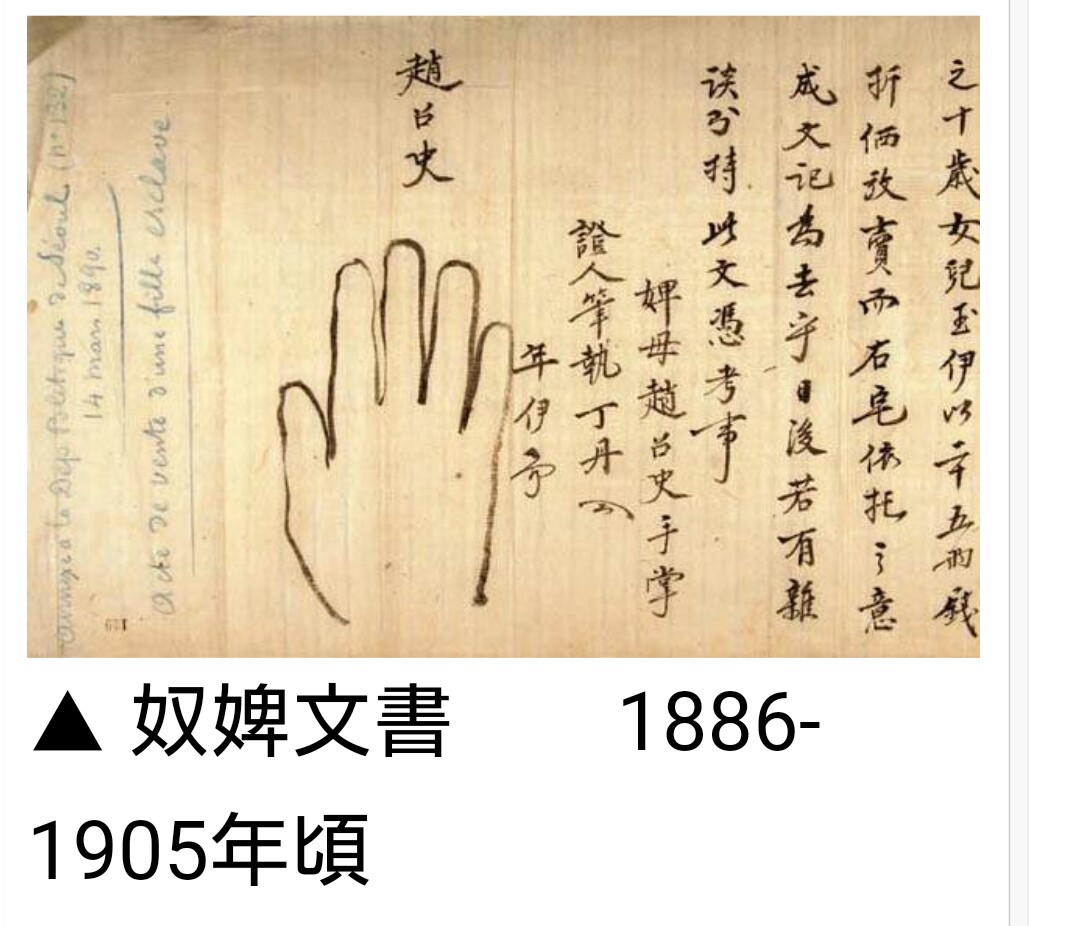 之十歳女兒玉伊以二十五兩錢
折価放賣而右宅依托之意
成文記為去乎日後若有雜
談㐣特此文憑考事
婢母趙召史手掌
證人筆執丁丹
年伊㐣
趙召史
acte de vente d'une fille esclave
14 mars 1890.
annexe à la Dép Politique de Séoul (n° 132)
▲ 奴婢文書 1886-
1905年頃